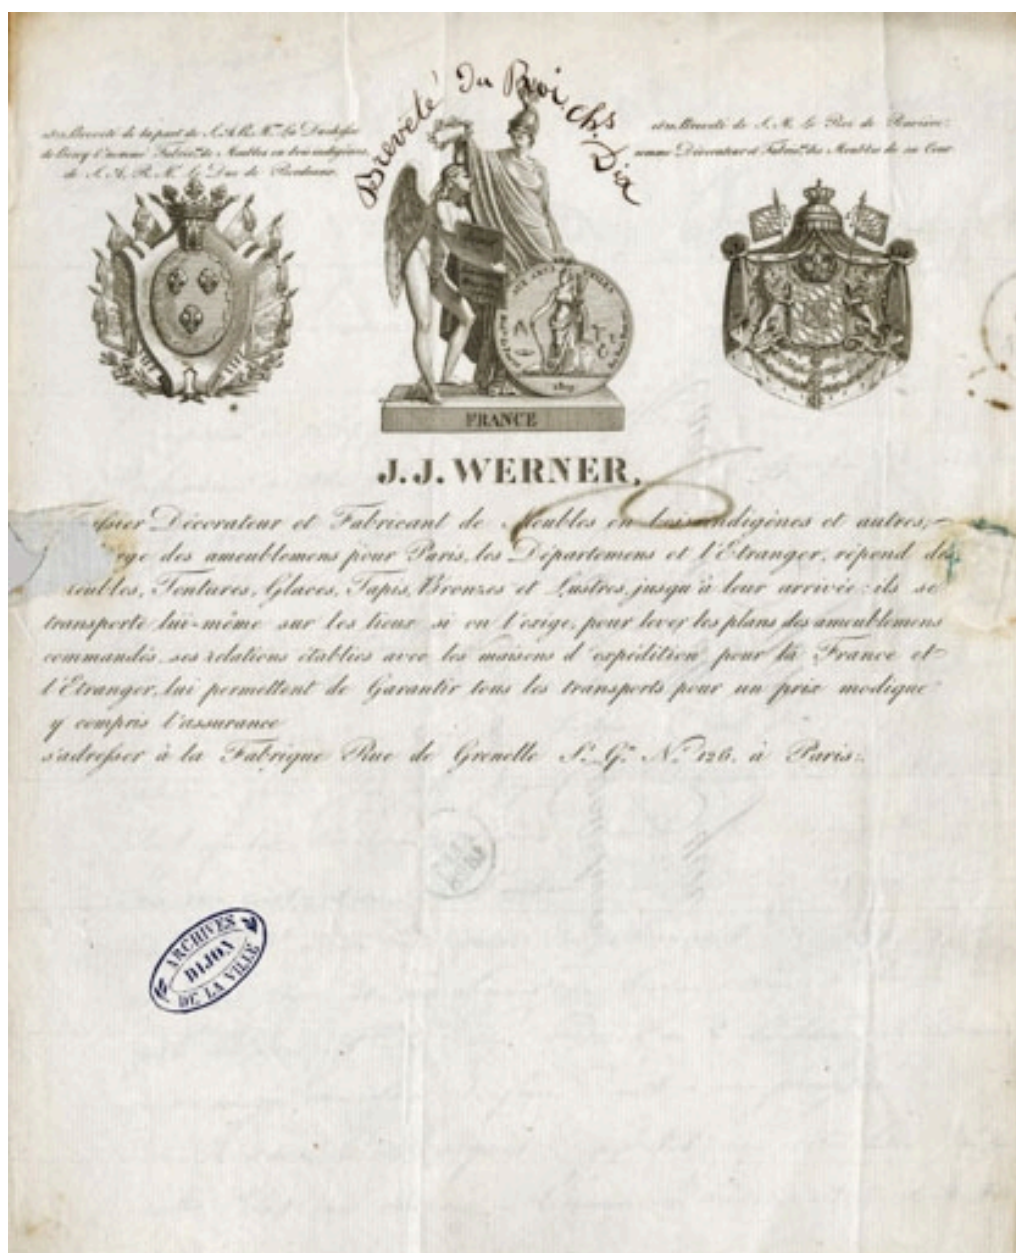 Breveté du Roi, Chs Dix
Breveté de la part de S. A. R. Me La Duchesse
de Berry nommé Fabrict de Meubles en bois indigènes
de S. A. R. M. Le Duc de Bordeaux.
Breveté de S. M. Le Roi de Bavière:
comme Décorateur et Fabrict des Meubles de sa Cour
AUX ARTS
1819
FRANCE
J. J. WERNER,
Décorateur et Fabricant de Meubles en bois indigènes et autres,
des ameublemens pour Paris, les Départemens et l'Etranger, répond des
Tentures, Glaces, Tapis, Bronzes et Lustres, jusqu'à leur arrivée: ils se
transporte lui-même sur les lieux si on l'exige, pour lever les plans des ameublemens
commandés. ses relations établies avec les maisons d'expédition pour la France et
l'Etranger, lui permettent de Garantir tous les transports pour un prix modique
y compris l'assurance
s'adresser à la Fabrique Rue de Grenelle St. Gn. No. 126. à Paris:
ARCHIVES
DIJON
DE LA VILLE